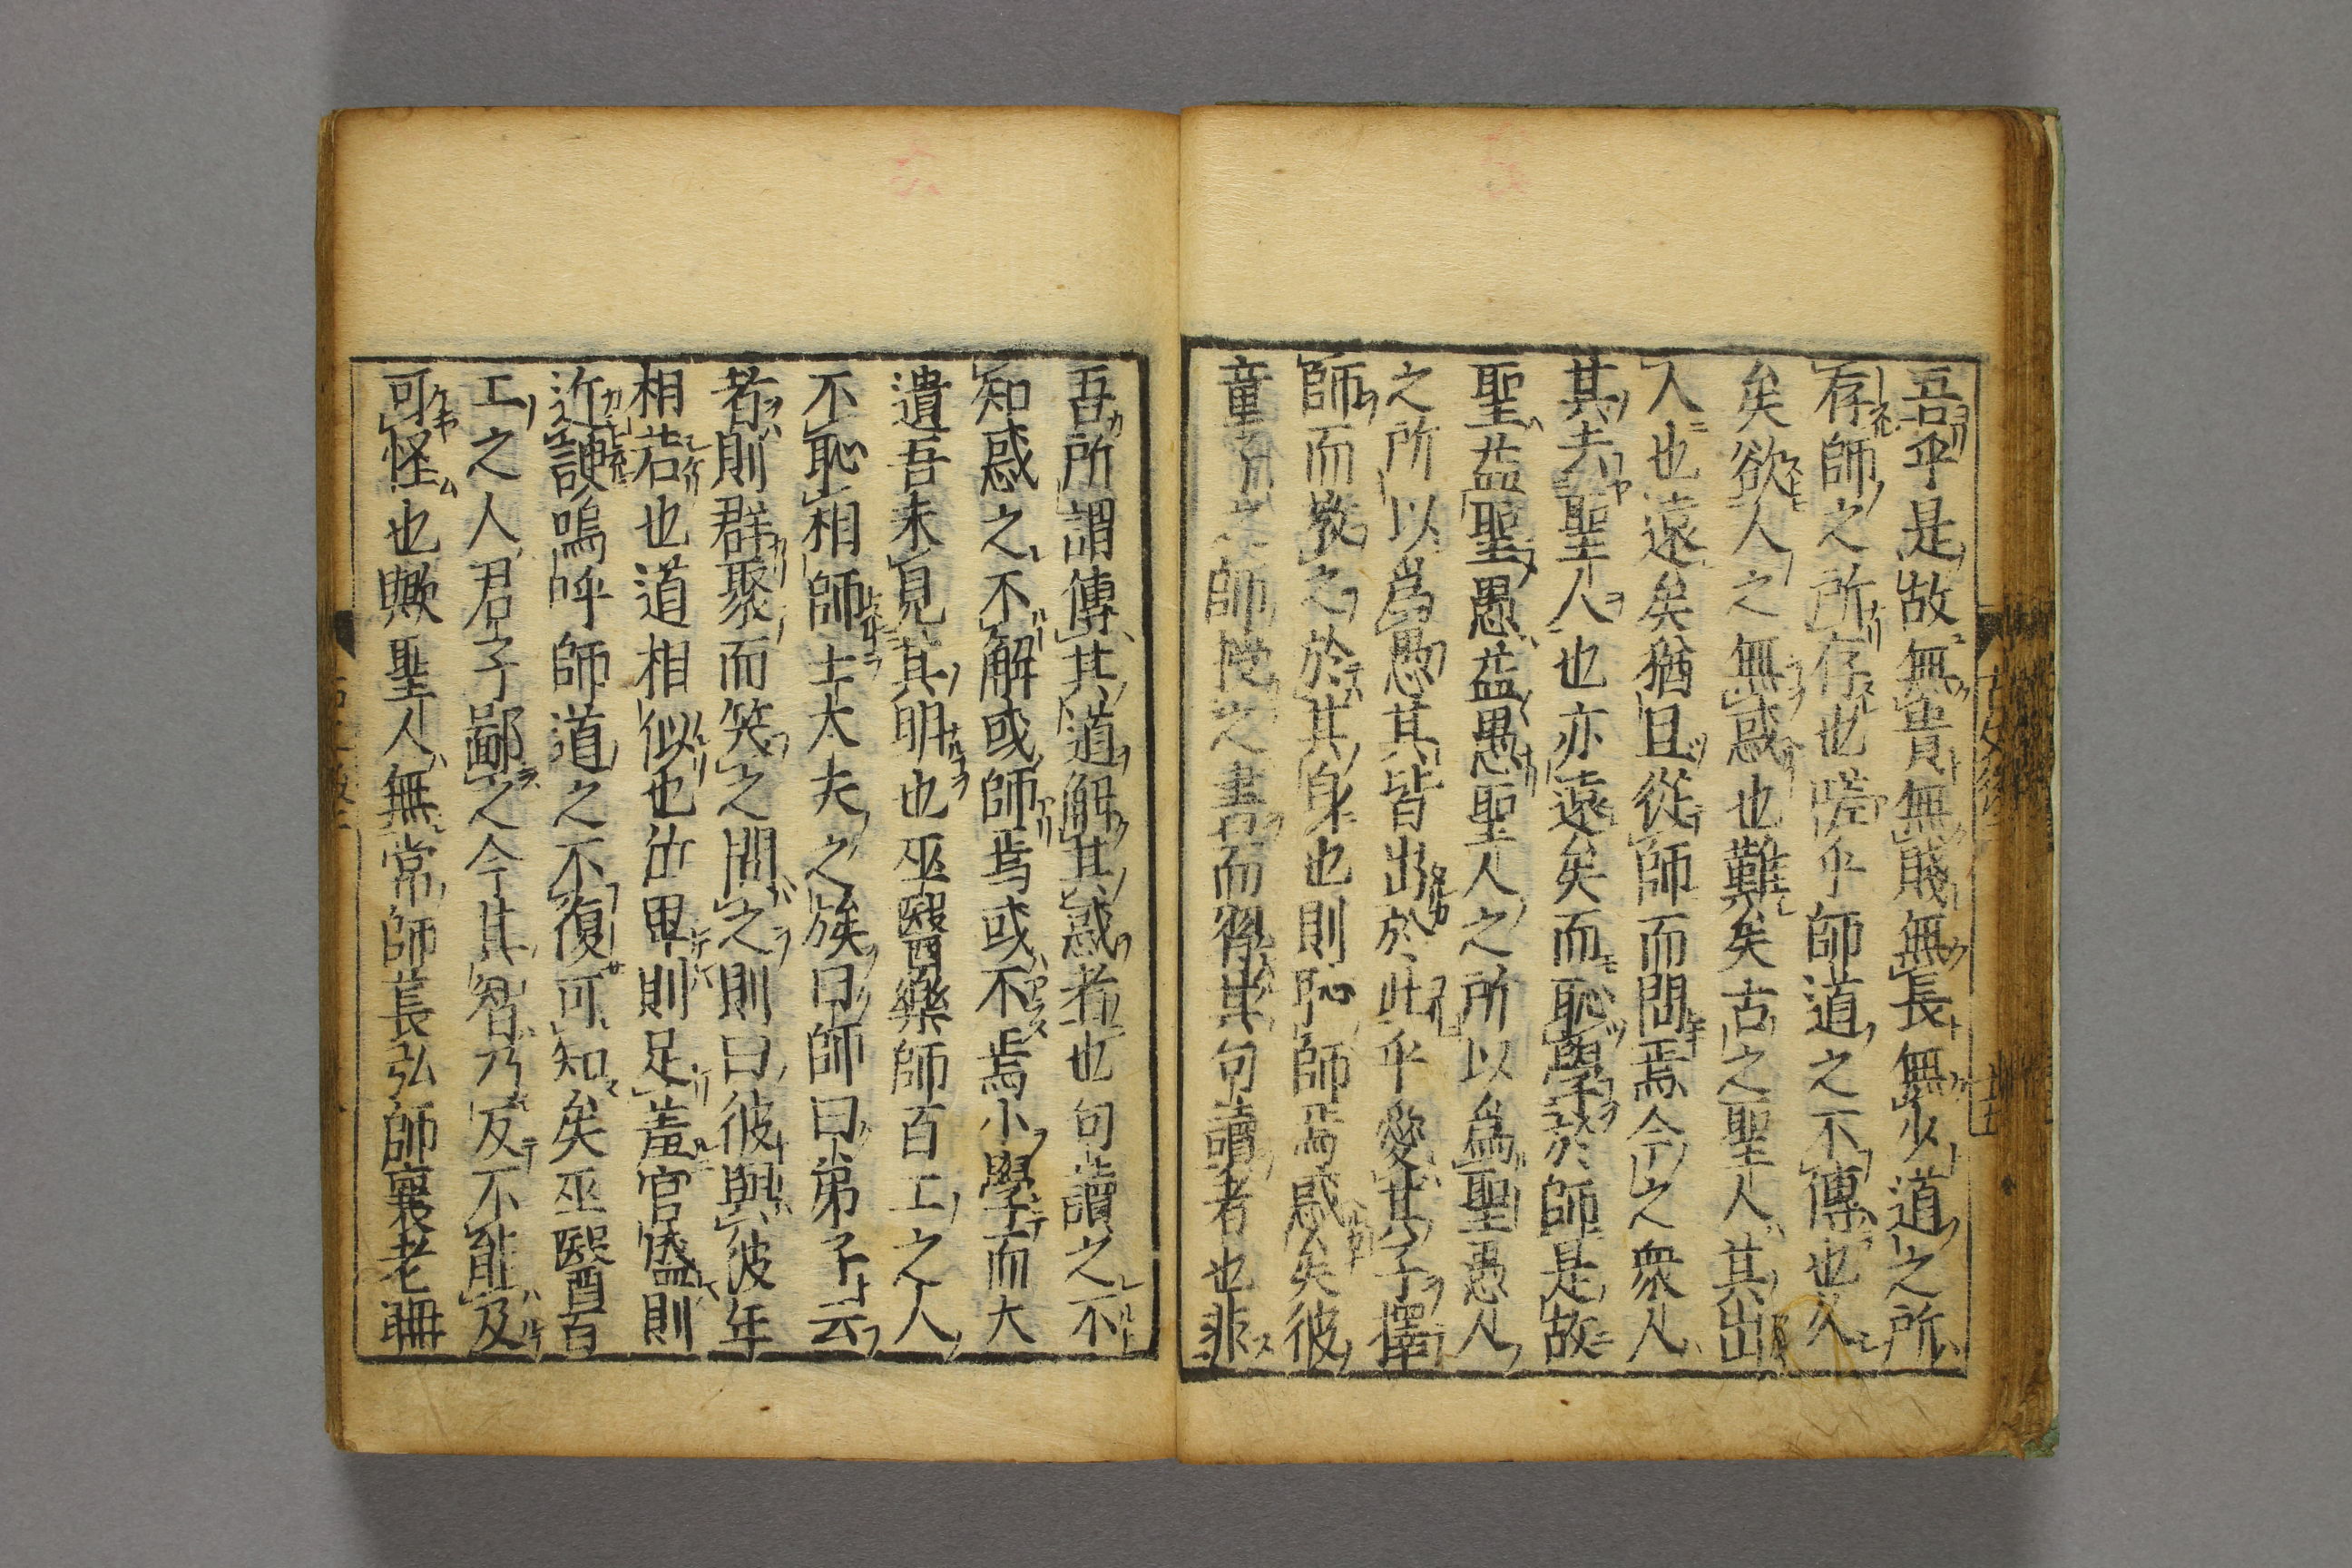 吾乎是故無貴無賤無長無少道之所
存師之所存也嗟乎師道之不傳也久
矣欲人之無惑也難矣古之聖人其出
人也遠矣猶且從師而問焉今之衆人
其去聖人也亦遠矣而恥學於師是故
聖益聖愚益愚聖人之所以爲聖愚人
之所以爲愚其皆出於此乎愛其子擇
師而敎之於其身也則恥師焉惑矣彼
童子之師授之書而習其句讀者也非
吾所謂傳其道解其惑者也句讀之不
知惑之不解或師焉或不焉小學而大
遺吾未見其明也巫醫藥師百工之人
不恥相師士大夫之族曰師曰弟子云
者則群聚而笑之問之則曰彼與彼年
相若也道相似也位卑則足羞官盛則
近諛嗚呼師道之不復可知矣巫醫百
工之人君子鄙之今其智乃反不能及
可怪也歟聖人無常師萇弘師襄老聃